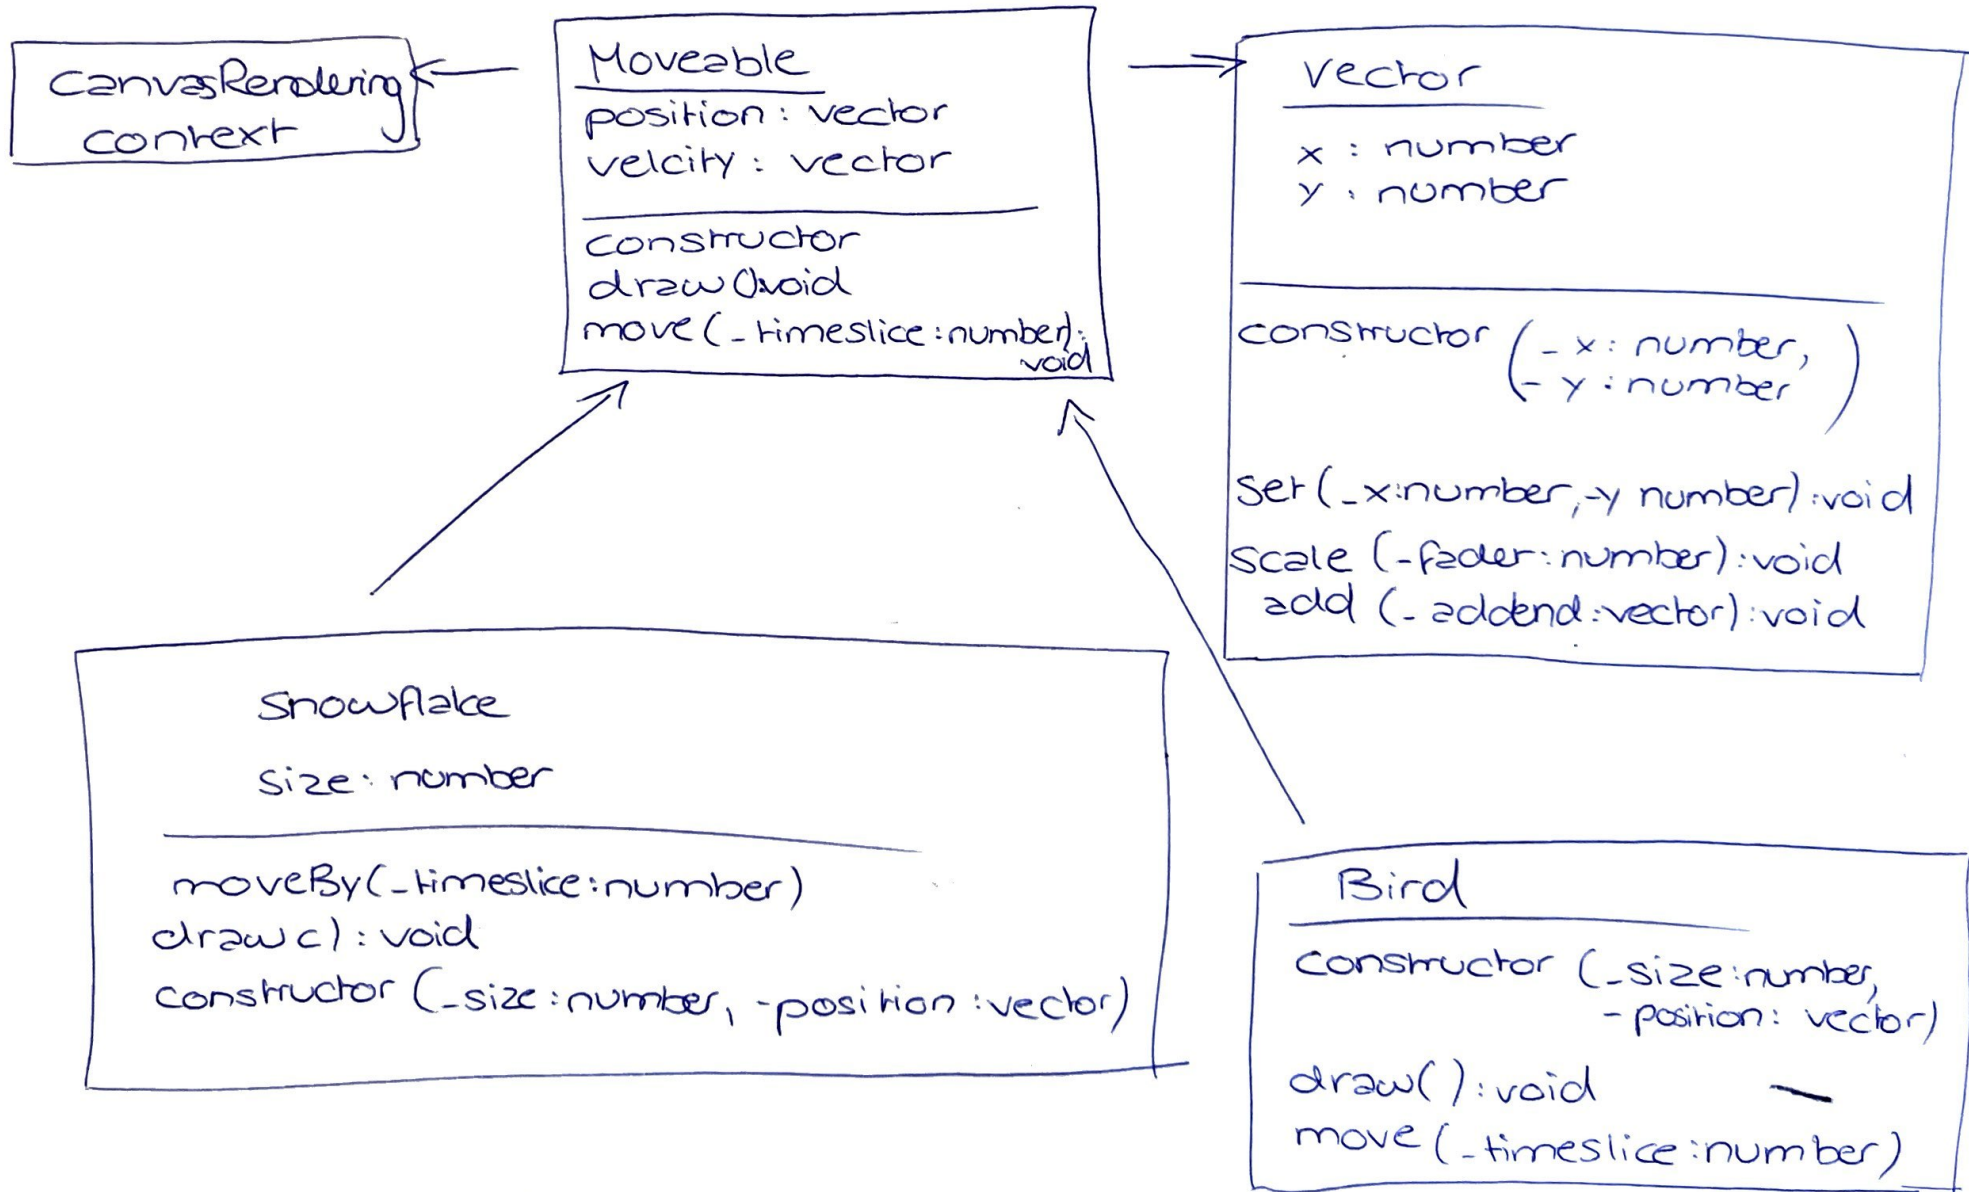 CanvasRendering
context
Moveable
position: vector
velcity: vector
constructor
draw():void
move(_timeslice:number):
void
vector
x : number
y : number
constructor (_x: number,
_y: number)
set(_x:number,_y number):void
scale (_fader:number):void
add (_addend:vector):void
snowflake
size: number
moveBy(_timeslice:number)
draw():void
constructor (_size:number, _position:vector)
Bird
constructor (_size:number,
_position: vector)
draw():void
move(_timeslice:number)